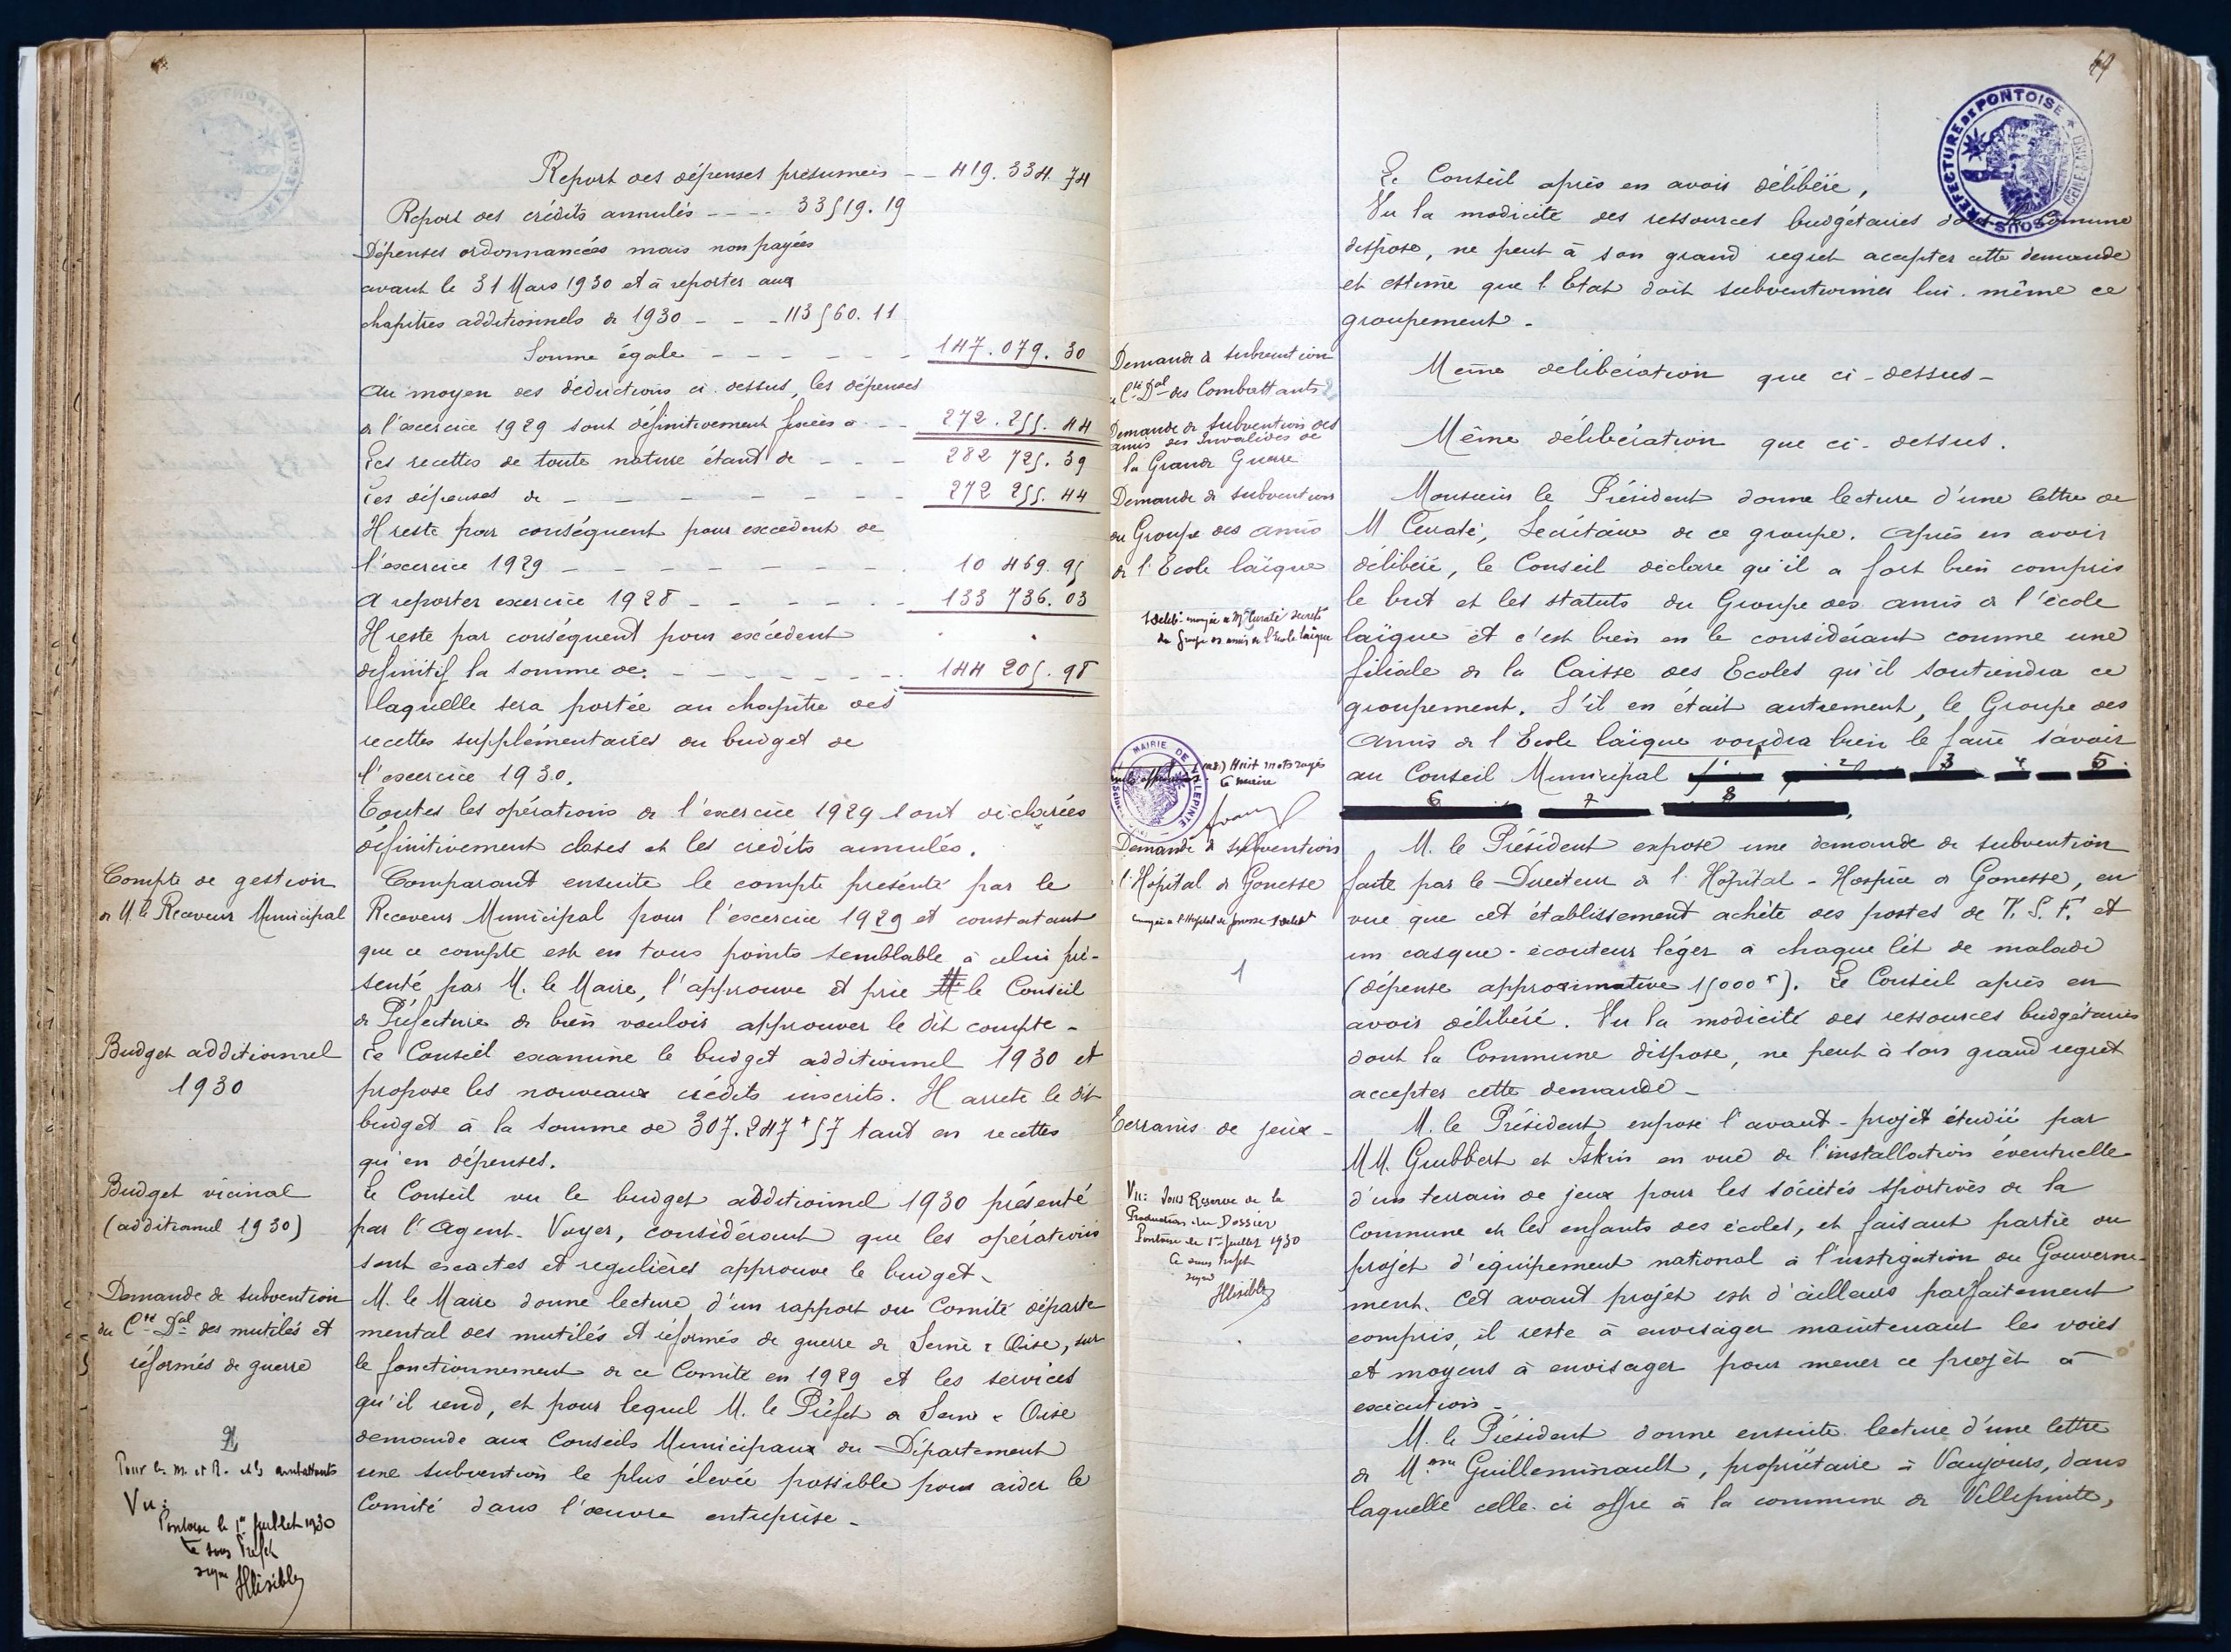 Report des dépenses présumées - - 419.334.74
Report des crédits annulés - - - - 33519.19
Dépenses ordonnancées mais non payées
avant le 31 Mars 1930 et à reporter aux
chapitres additionnels de 1930 - - - 113560.11
Somme égale - - - - - - 147.079.30
Au moyen des déductions ci-dessus, les dépenses
de l'exercice 1929 sont définitivement fixées à - - 272.255.44
Les recettes de toute nature étant de - - - 282 725.39
Les dépenses de - - - - - - - 272 255.44
Il reste par conséquent pour excédent de
l'exercice 1929 - - - - - - - 10 469.95
A reporter exercice 1928 - - - - - - 133 736.03
Il reste par conséquent pour excédent
définitif la somme de - - - - - - - 144 205.98
laquelle sera portée au chapitre des
recettes supplémentaires du budget de
l'exercice 1930.
Toutes les opérations de l'exercice 1929 sont déclarées
définitivement closes et les crédits annulés.
Compte de gestion
de M. le Receveur Municipal
Comparant ensuite le compte présenté par le
Receveur Municipal pour l'exercice 1929 et constatant
que ce compte est en tous points semblable à celui pré-
senté par M. le Maire, l'approuve et prie M le Conseil
de Préfecture de bien vouloir approuver le dit compte -
Budget additionnel
1930
Le Conseil examine le budget additionnel 1930 et
propose les nouveaux crédits inscrits. Il arrête le dit
budget à la somme de 307.247f57 tant en recettes
qu'en dépenses.
Budget vicinal
(additionnel 1930)
Le Conseil vu le budget additionnel 1930 présenté
par l'Agent-Voyer, considérant que les opérations
sont exactes et régulières approuve le budget -
Demande de subvention
du Cté Dal des mutilés et
réformés de guerre
M. le Maire donne lecture d'un rapport du Comité départe
mental des mutilés et réformés de guerre de Seine & Oise, sur
le fonctionnement de ce Comité en 1929 et les services
qu'il rend, et pour lequel M. le Préfet de Seine & Oise
demande aux Conseils Municipaux du Département
une subvention le plus élevée possible pour aider le
Comité dans l'œuvre entreprise -
2
Pour les M. et R. et les combattants
Vu:
Pontoise le 1er Juillet 1930
Le Sous Préfet
signé Illisible
49
SOUS-PREFECTURE DE PONTOISE
Le Conseil après en avoir délibéré,
Vu la modicité des ressources budgétaires dont la Commune
dispose, ne peut à son grand regret accepter cette demande
et estime que l'Etat doit subventionner lui-même ce
groupement -
Demande de subvention
Cté Dal des Combattants
Même délibération que ci-dessus -
Demande de subvention des
amis des Invalides de
la Grande Guerre
Même délibération que ci-dessus.
Demande de subvention
du Groupe des amis
de l'Ecole laïque
Monsieur le Président donne lecture d'une lettre de
M Curaté, Secrétaire de ce groupe. Après en avoir
délibéré, le Conseil déclare qu'il a fort bien compris
le but et les statuts du Groupe des amis de l'école
laïque et c'est bien en le considérant comme une
filiale de la Caisse des Ecoles qu'il soutiendra ce
groupement. S'il en était autrement, le Groupe des
Amis de l'Ecole laïque voudra bien le faire savoir
au Conseil Municipal 1 2 3 4 5
6 7 8
1 délib. envoyée à Mr Curaté Secrét
du groupe des amis de l'Ecole laïque
MAIRIE DE VILLEPINTE
Huit mots rayés
Le Maire
Demande de subvention
l'Hôpital de Gonesse
envoyée à l'Hôpital de Gonesse 1 délibt
1
M. le Président expose une demande de subvention
faite par le Directeur de l'Hôpital-Hospice de Gonesse, en
vue que cet établissement achète des postes de T.S.F. et
un casque-écouteur léger à chaque lit de malade
(dépense approximative 15000 f). Le Conseil après en
avoir délibéré. Vu la modicité des ressources budgétaires
dont la Commune dispose, ne peut à son grand regret
accepter cette demande -
Terrains de jeux -
M. le Président expose l'avant-projet étudié par
MM. Guibbert et Iskin en vue de l'installation éventuelle
d'un terrain de jeux pour les sociétés sportives de la
Commune et les enfants des écoles, et faisant partie du
projet d'équipement national à l'instigation du Gouverne-
ment. Cet avant projet est d'ailleurs parfaitement
compris, il reste à envisager maintenant les voies
et moyens à envisager pour mener ce projet à
exécution -
Vu: Sous Réserve de la
Production du Dossier
Pontoise le 1er Juillet 1930
Le Sous Préfet
signé
Illisible
M. le Président donne ensuite lecture d'une lettre
de Mme Guilleminault, propriétaire à Vaujours, dans
laquelle celle-ci offre à la commune de Villepinte,